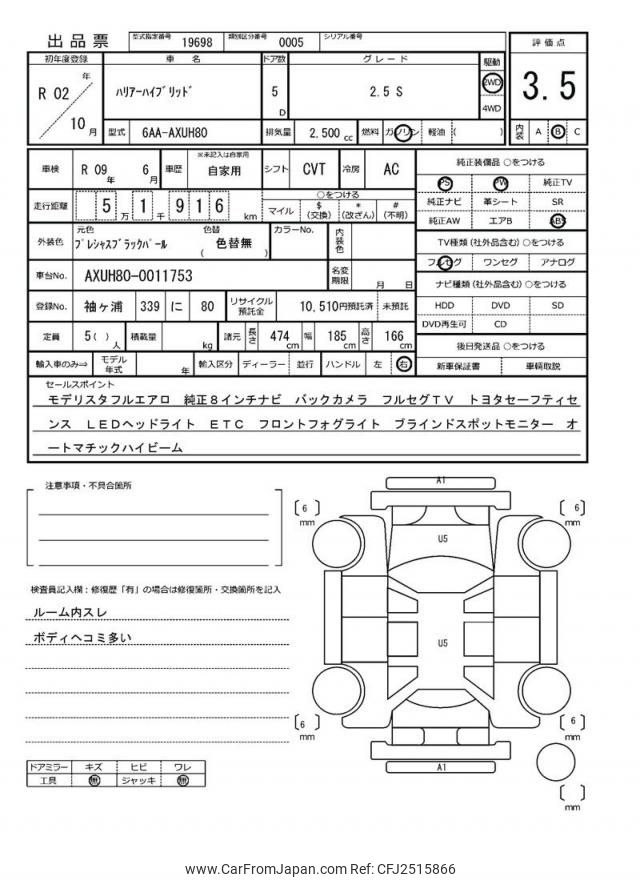 出品票
型式指定番号 19698 類別区分番号 0005 シリアル番号
初年度登録 車 名 ドア数 グレード 駆動 評価点
R 02 年 10 月
ハリアーハイブリッド
5 D
2.5 S
2WD
4WD
3.5
型式 6AA-AXUH80 排気量 2,500 cc 燃料 ガソリン 軽油 ( )
内装 A B C
車検 R 09 年 6 月 車歴 ※未記入は自家用 自家用 シフト CVT 冷房 AC
走行距離 5 万 1 千 9 1 6 km
○をつける
マイル $ (交換) * (改ざん) # (不明)
外装色 元色 プレシャスブラックパール 色替 ( 色替無 ) カラーNo. 内装色
車台No. AXUH80-0011753 名変期限 月 日
登録No. 袖ヶ浦 339 に 80 リサイクル預託金 10,510円預託済 未預託
定員 5( ) 人 積載量 kg 諸元 長さ 474 cm 幅 185 cm 高さ 166 cm
輸入車のみ⇒ モデル年式 年 輸入区分 ディーラー 並行 ハンドル 左 右
純正装備品 ○をつける
PS PW 純正TV
純正ナビ 革シート SR
純正AW エアB ABS
TV種類(社外品含む) ○をつける
フルセグ ワンセグ アナログ
ナビ種類(社外品含む) ○をつける
HDD DVD SD
DVD再生可 CD
後日発送品 ○をつける
新車保証書 車輌取説
セールスポイント
モデリスタフルエアロ 純正8インチナビ バックカメラ フルセグTV トヨタセーフティセ
ンス LEDヘッドライト ETC フロントフォグライト ブラインドスポットモニター オ
ートマチックハイビーム
注意事項・不具合箇所
検査員記入欄:修復歴「有」の場合は修復箇所・交換箇所を記入
ルーム内スレ
ボディヘコミ多い
ドアミラー キズ ヒビ ワレ
工具 無 ジャッキ 無
A1
〔 6 〕 mm
〔 6 〕 mm
U5
U5
〔 6 〕 mm
〔 6 〕 mm
A1
〔 〕 mm
www.CarFromJapan.com Ref: CFJ2515866